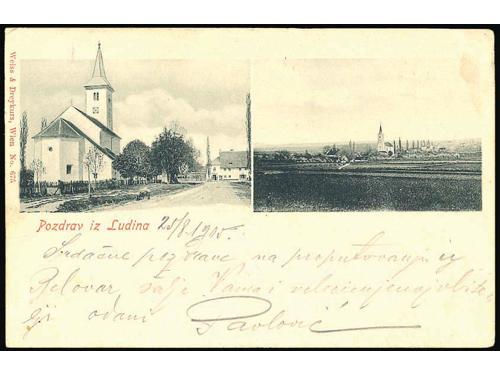 Weiss & Dreykurs, Wien No. 675
Pozdrav iz Ludina 25/8 1905.
Srdačne pozdrave na proputovanju iz
Bjelovar šalje Vama i velecijenjenoj obite-
lji odani Pavlović